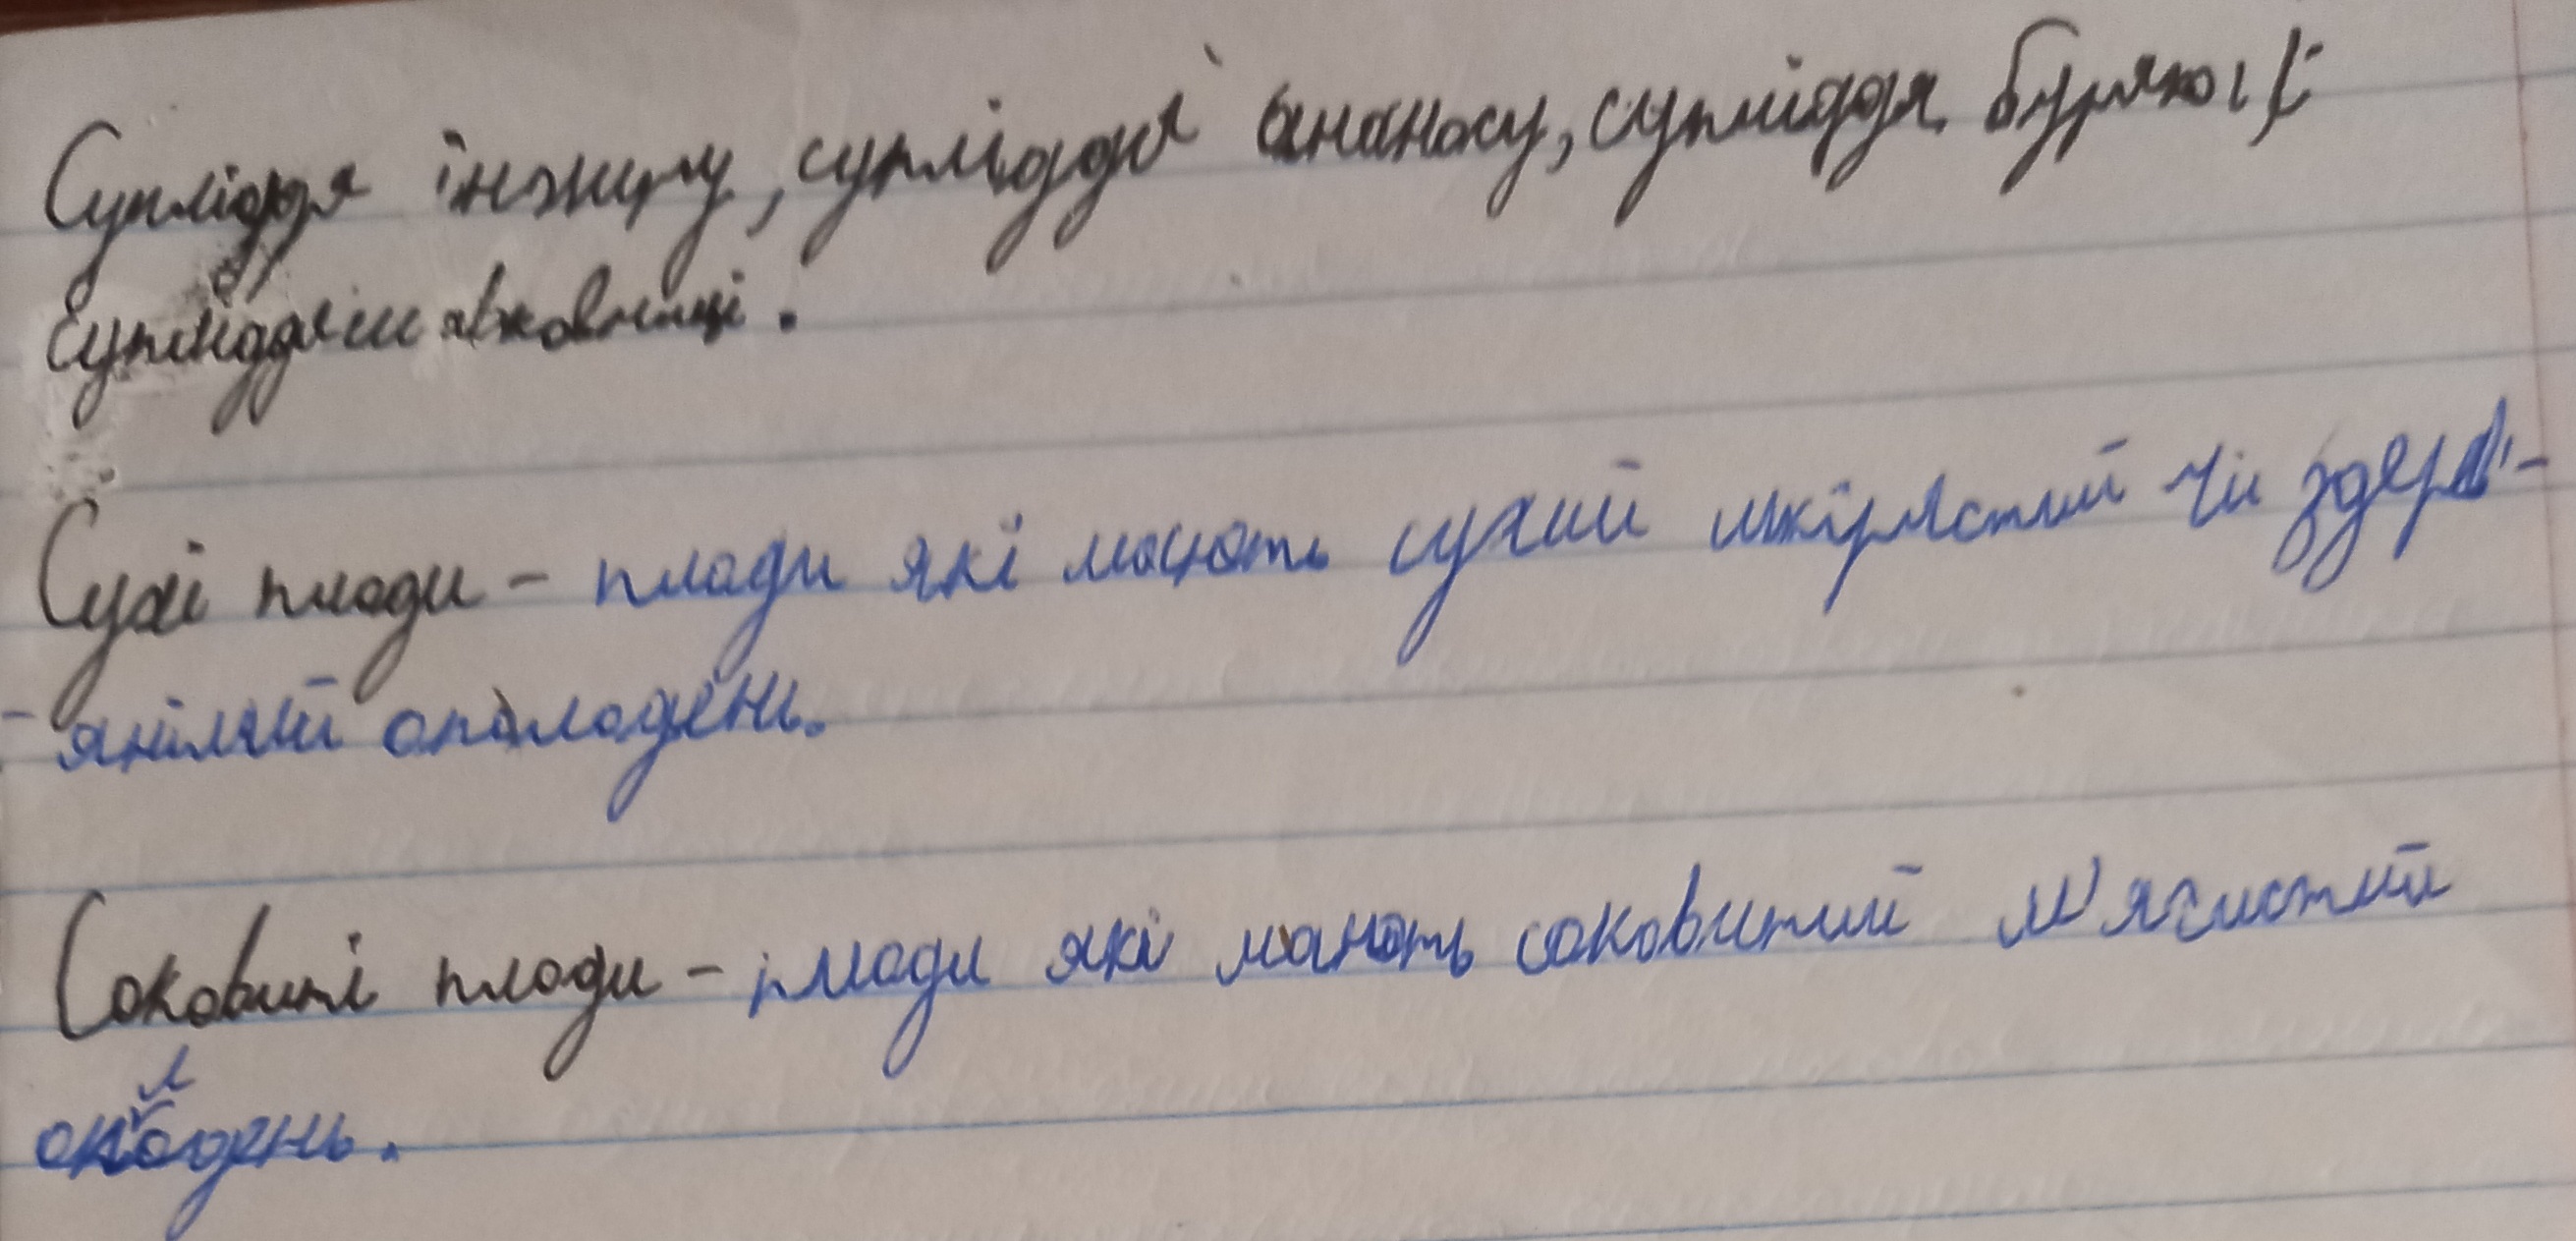 Супліддя інжиру, супліддя ананасу, супліддя буряка,
супліддя шовковиці.
Сухі плоди - плоди які мають сухий шкірястий чи здерев'-
- янілий оплодень.
Соковиті плоди - плоди які мають соковитий м'ясистий
оплодень.